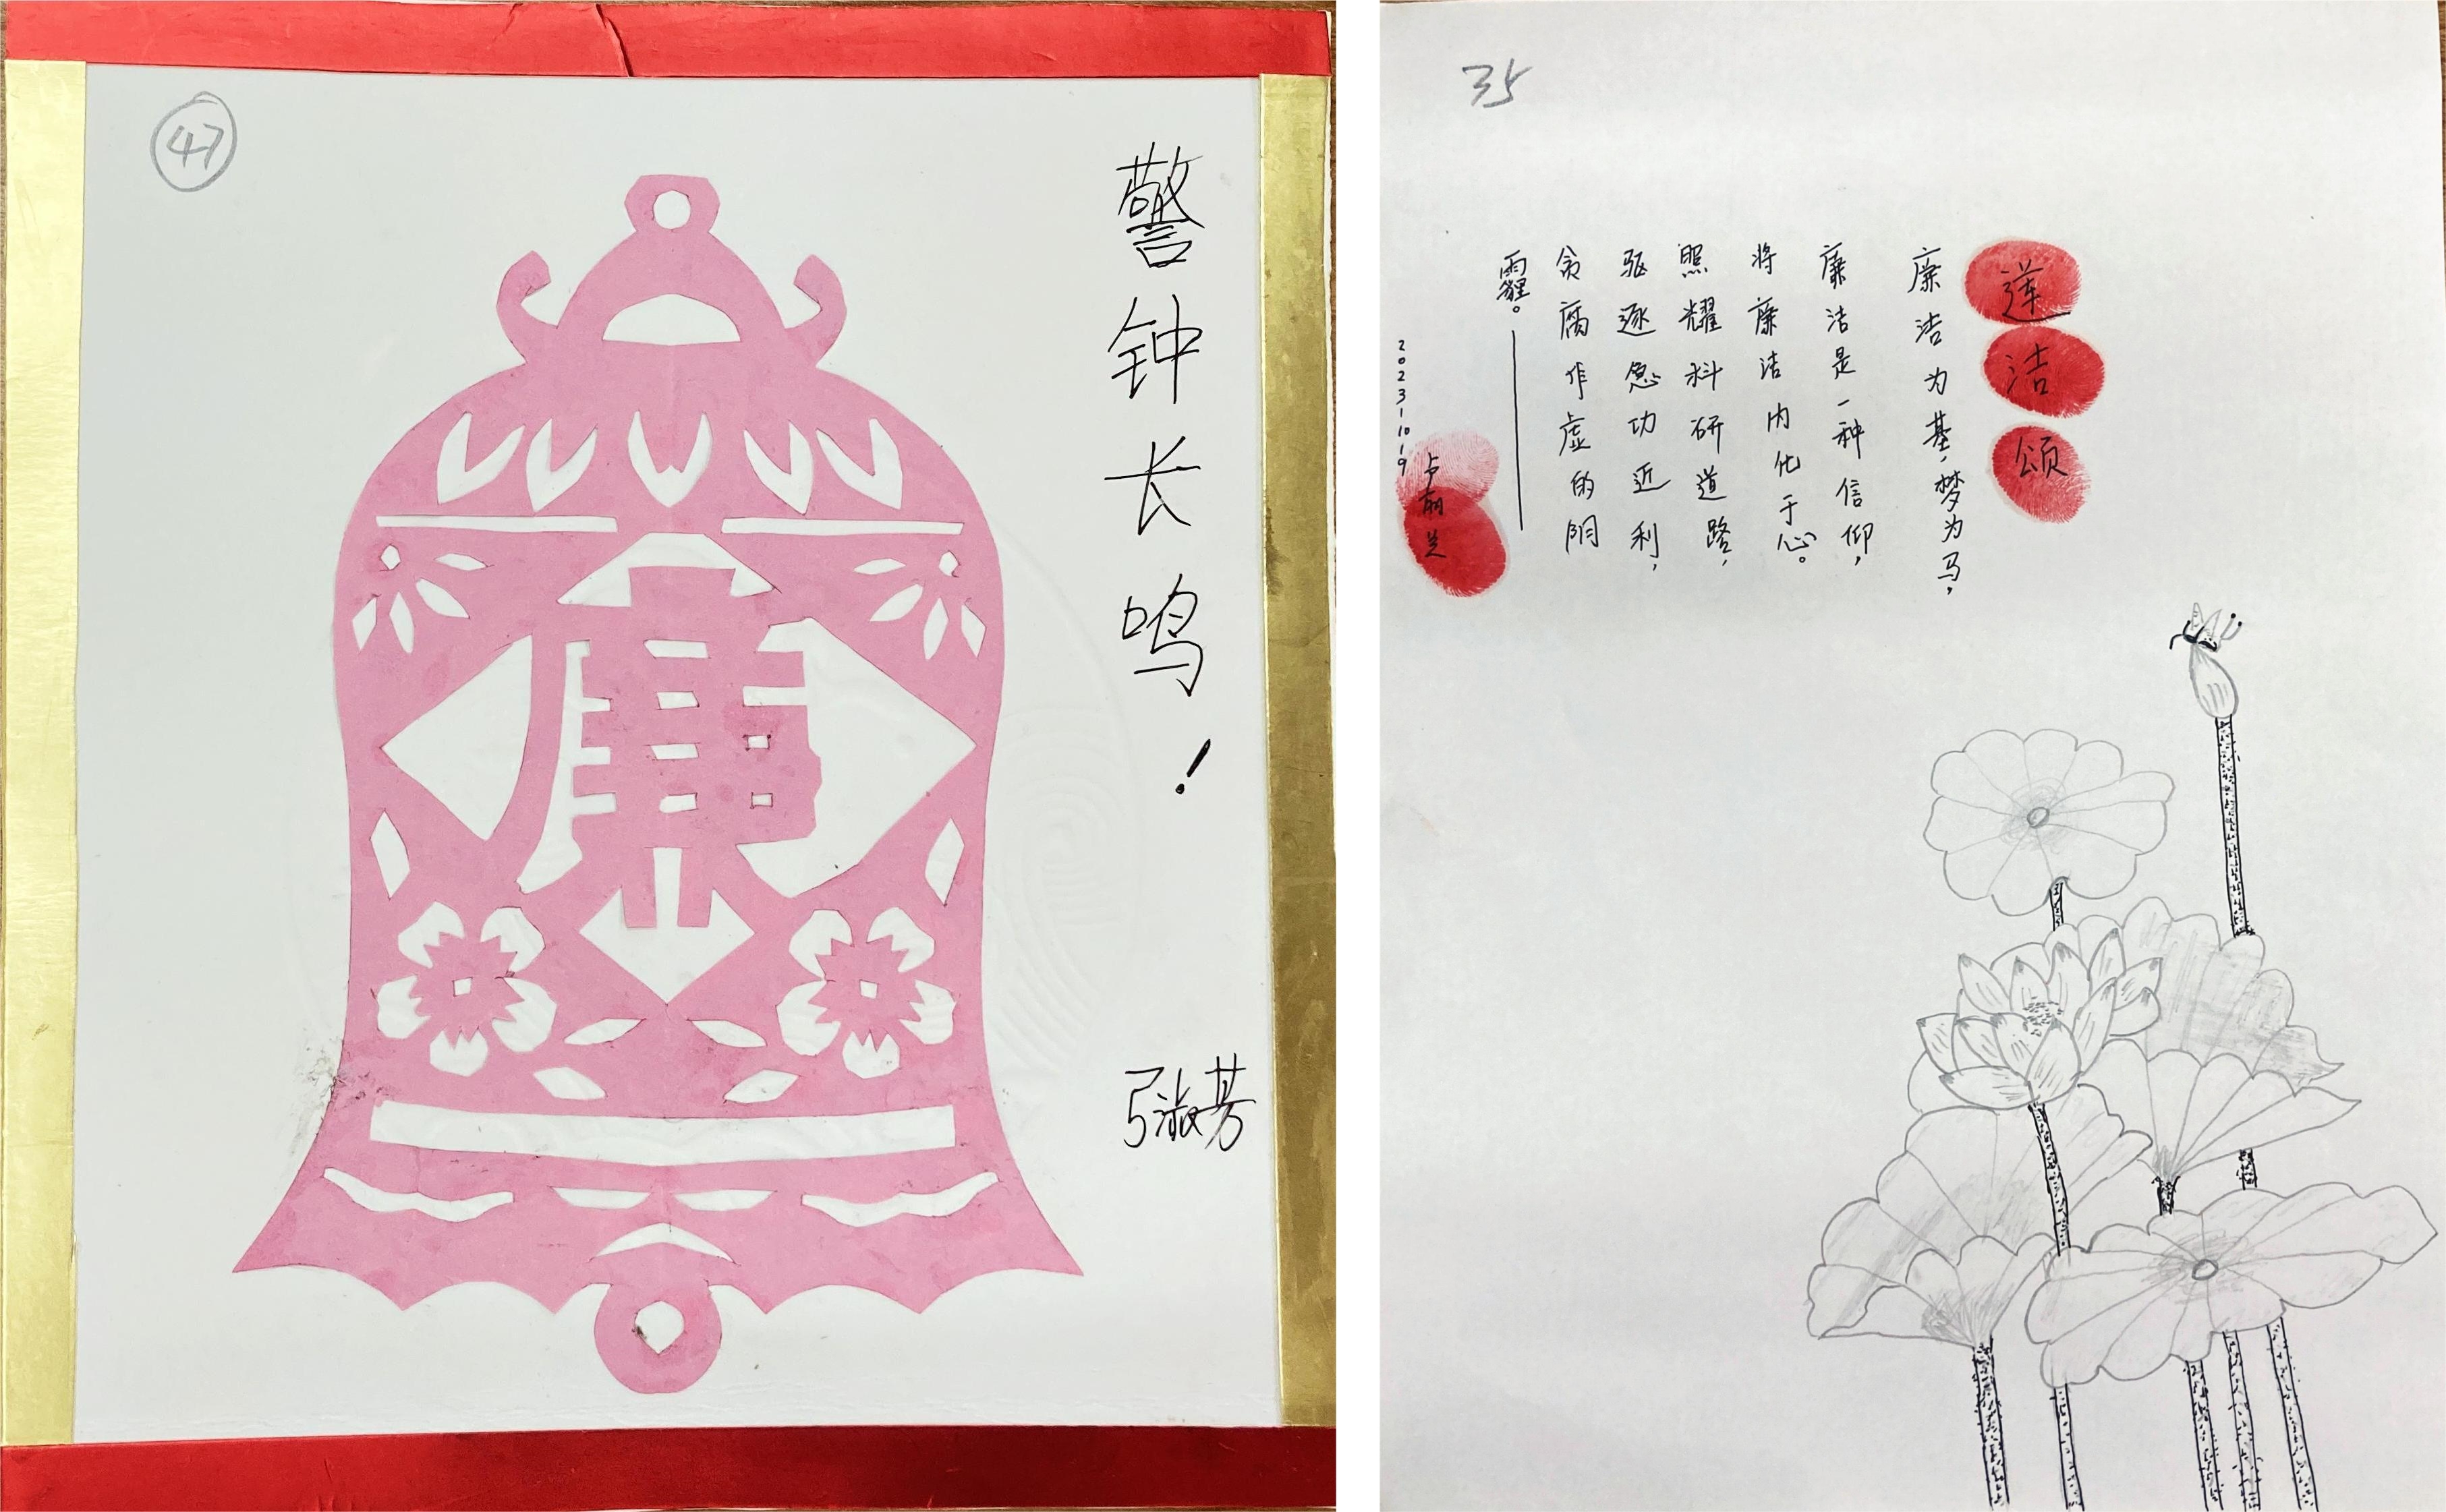 47
警钟长鸣！
廉
张淑芳
35
莲洁颂
廉洁为基，梦为马，
廉洁是一种信仰，
将廉洁内化于心。
照耀科研道路，
驱逐急功近利，
贪腐作虚的阴
霾。——
2023-10-19